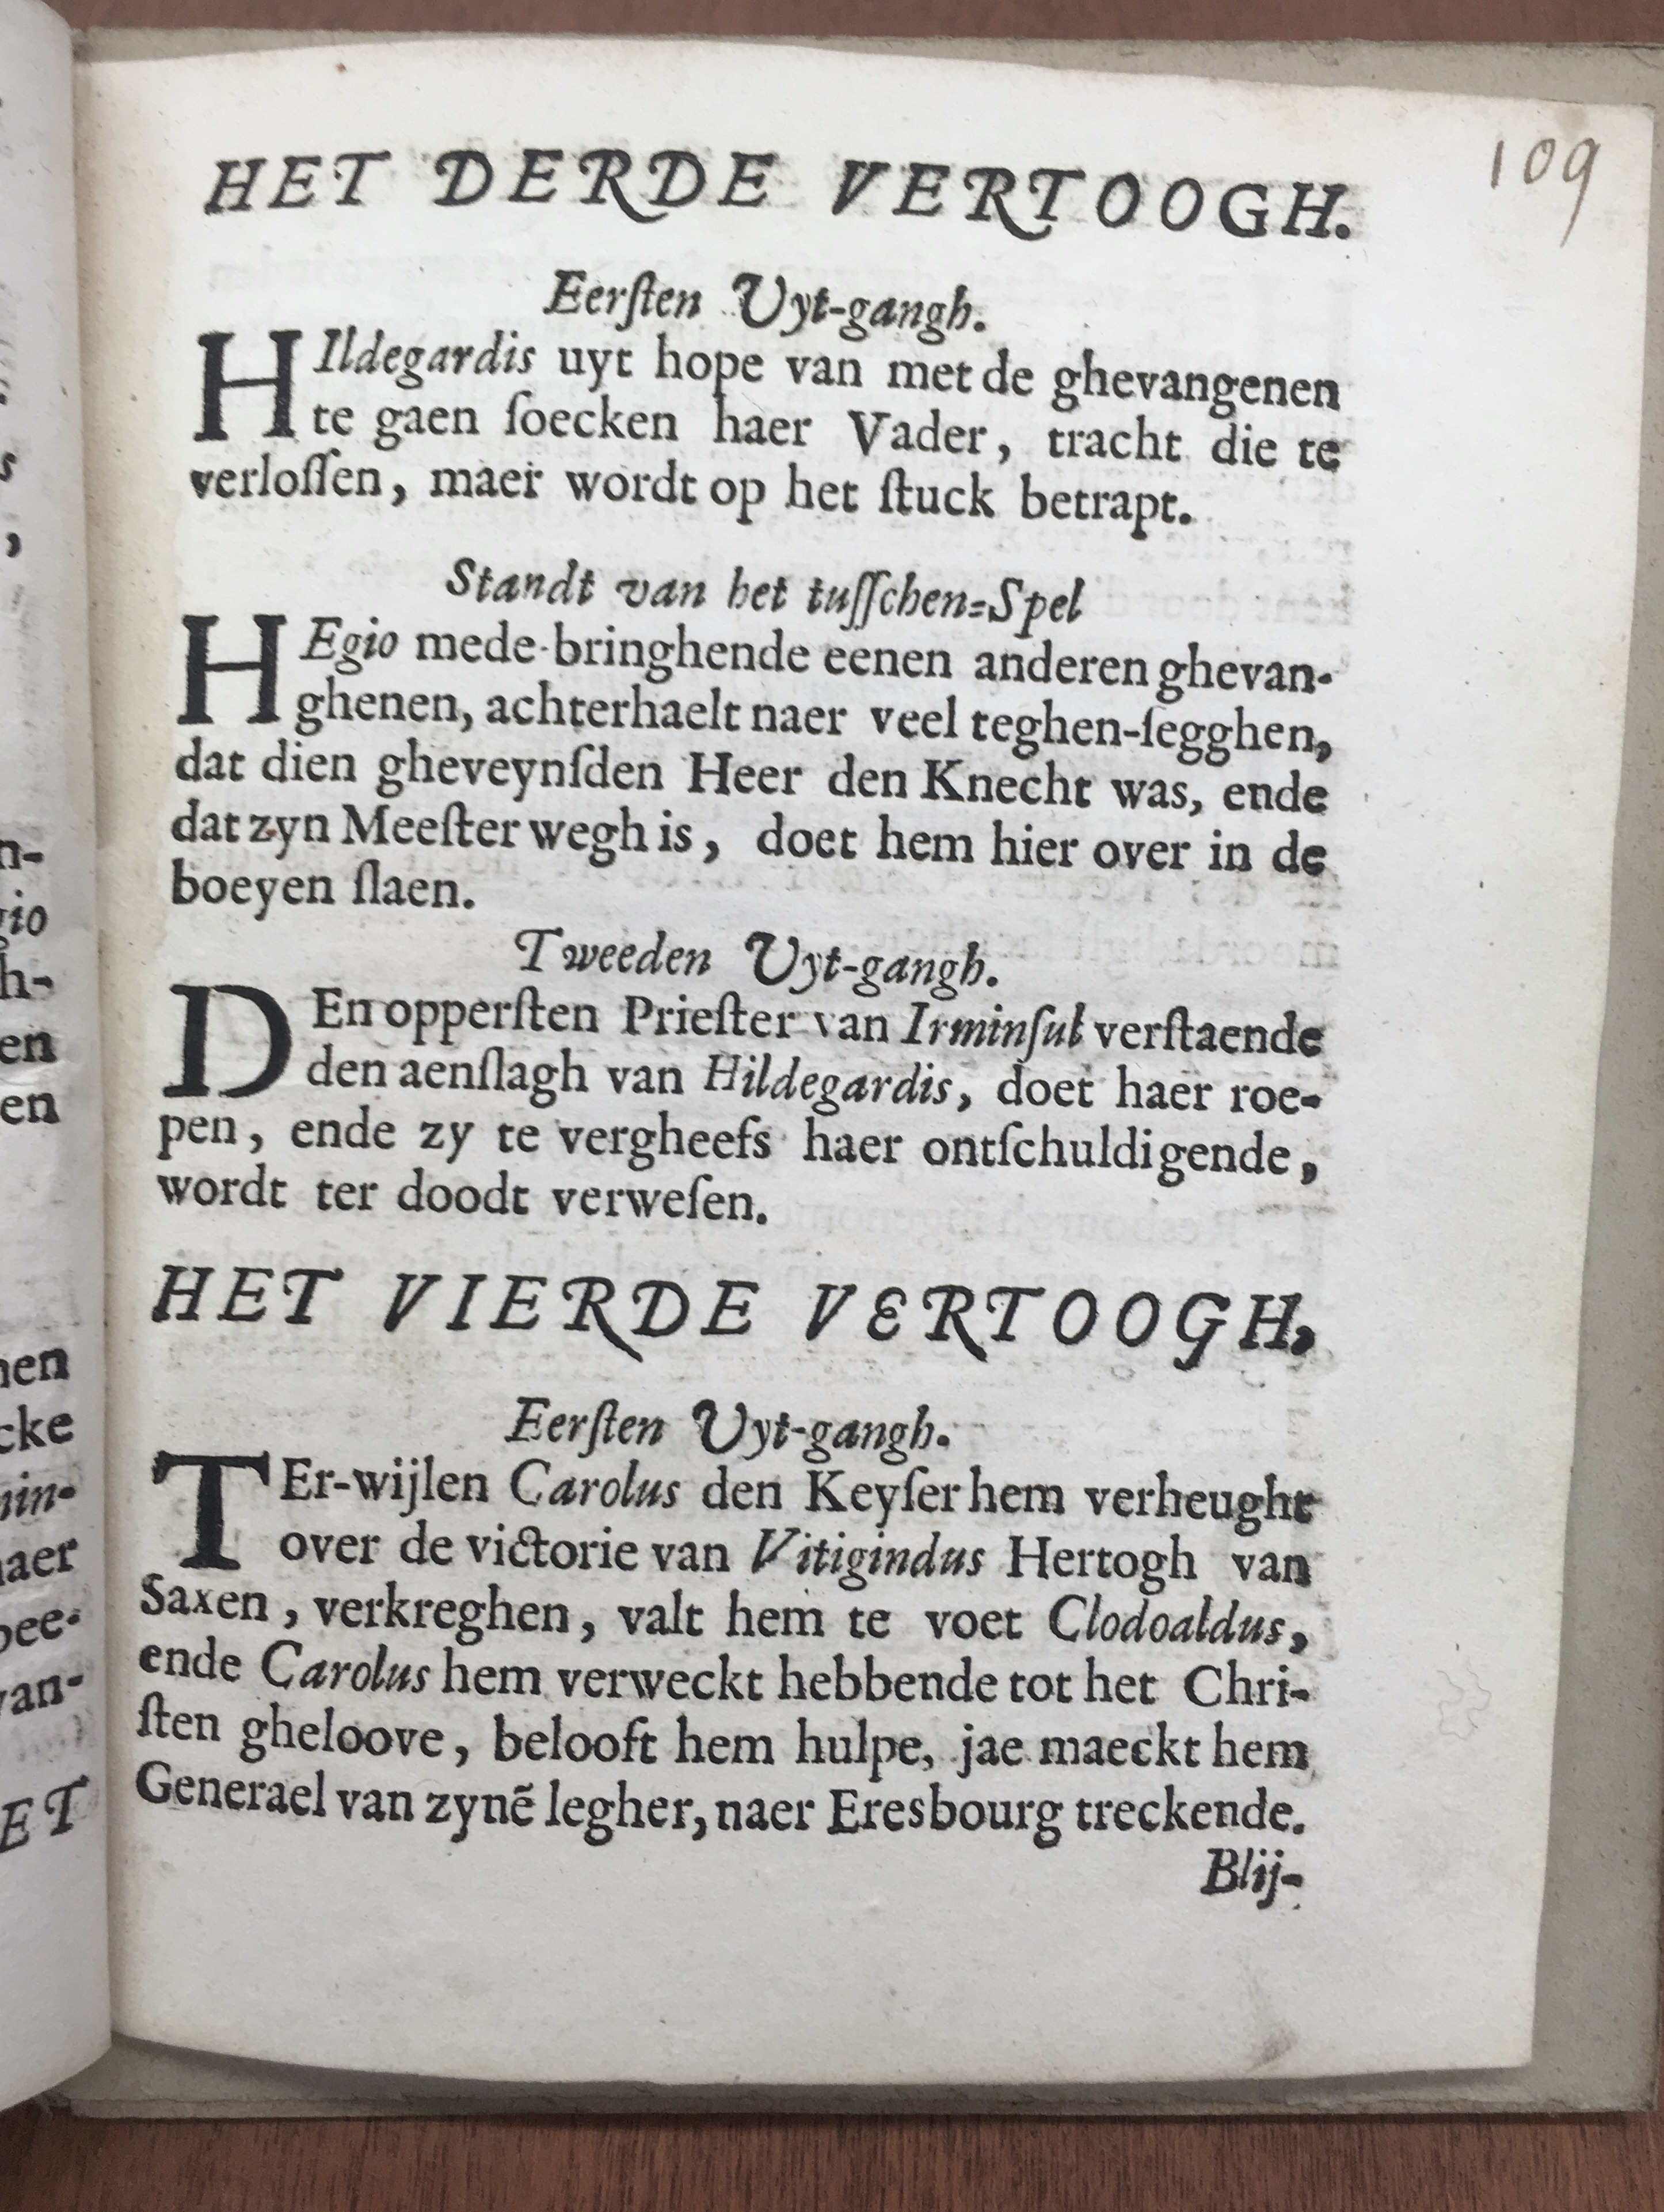 109
HET DERDE VERTOOGH.
Eerſten Uyt-gangh.
HIldegardis uyt hope van met de ghevangenen
te gaen ſoecken haer Vader, tracht die te
verloſſen, maer wordt op het ſtuck betrapt.
Standt van het tuſſchen-Spel
HEgio mede-bringhende eenen anderen ghevan-
ghenen, achterhaelt naer veel teghen-ſegghen,
dat dien gheveynſden Heer den Knecht was, ende
dat zyn Meeſter wegh is, doet hem hier over in de
boeyen ſlaen.
Tweeden Uyt-gangh.
DEn opperſten Prieſter van Irminſul verſtaende
den aenſlagh van Hildegardis, doet haer roe-
pen, ende zy te vergheefs haer ontſchuldigende,
wordt ter doodt verweſen.
HET VIERDE VERTOOGH,
Eerſten Uyt-gangh.
TEr-wijlen Carolus den Keyſer hem verheught
over de victorie van Vitigindus Hertogh van
Saxen, verkreghen, valt hem te voet Clodoaldus,
ende Carolus hem verweckt hebbende tot het Chri-
ſten gheloove, belooft hem hulpe, jae maeckt hem
Generael van zynẽ legher, naer Eresbourg treckende.
Blij-